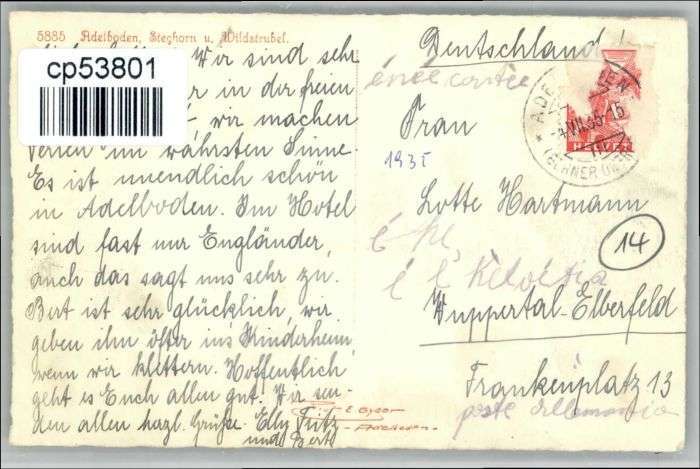 5885 Adelboden, Steghorn u. Wildstrubel.
cp53801
Wir sind sehr
in der freien
wir machen
Ferien im wahrsten Sinne.
Es ist unendlich schön
in Adelboden. Im Hotel
sind fast nur Engländer,
auch das sagt uns sehr zu.
Bert ist sehr glücklich, wir
geben ihn öfter ins Kinderheim,
wenn wir klettern. Hoffentlich
geht es Euch allen gut. Wir sen-
den allen herzl. Grüße. Elly, Fritz
und Bert
Deutschland!
HELVETIA
Frau
1935
Lotte Hartmann
14
é
é é Helvétia
Wuppertal-Elberfeld
Frankenplatz 13
poste